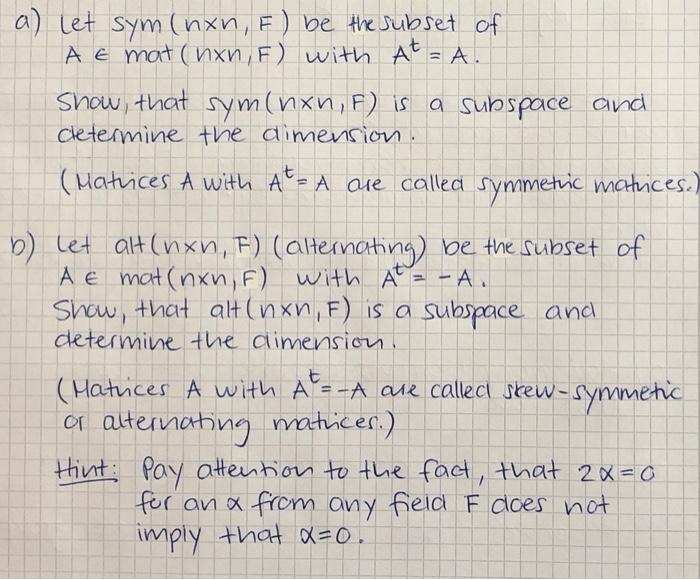 a) Let sym(n×n, F) be the subset of
A ∈ mat(n×n, F) with Aᵗ = A.
Show, that sym(n×n, F) is a subspace and
determine the dimension.
(Matrices A with Aᵗ = A are called symmetric matrices.)
b) Let alt(n×n, F) (alternating) be the subset of
A ∈ mat(n×n, F) with Aᵗ = -A.
Show, that alt(n×n, F) is a subspace and
determine the dimension.
(Matrices A with Aᵗ = -A are called skew-symmetric
or alternating matrices.)
Hint: Pay attention to the fact, that 2α = 0
for an α from any field F does not
imply that α = 0.